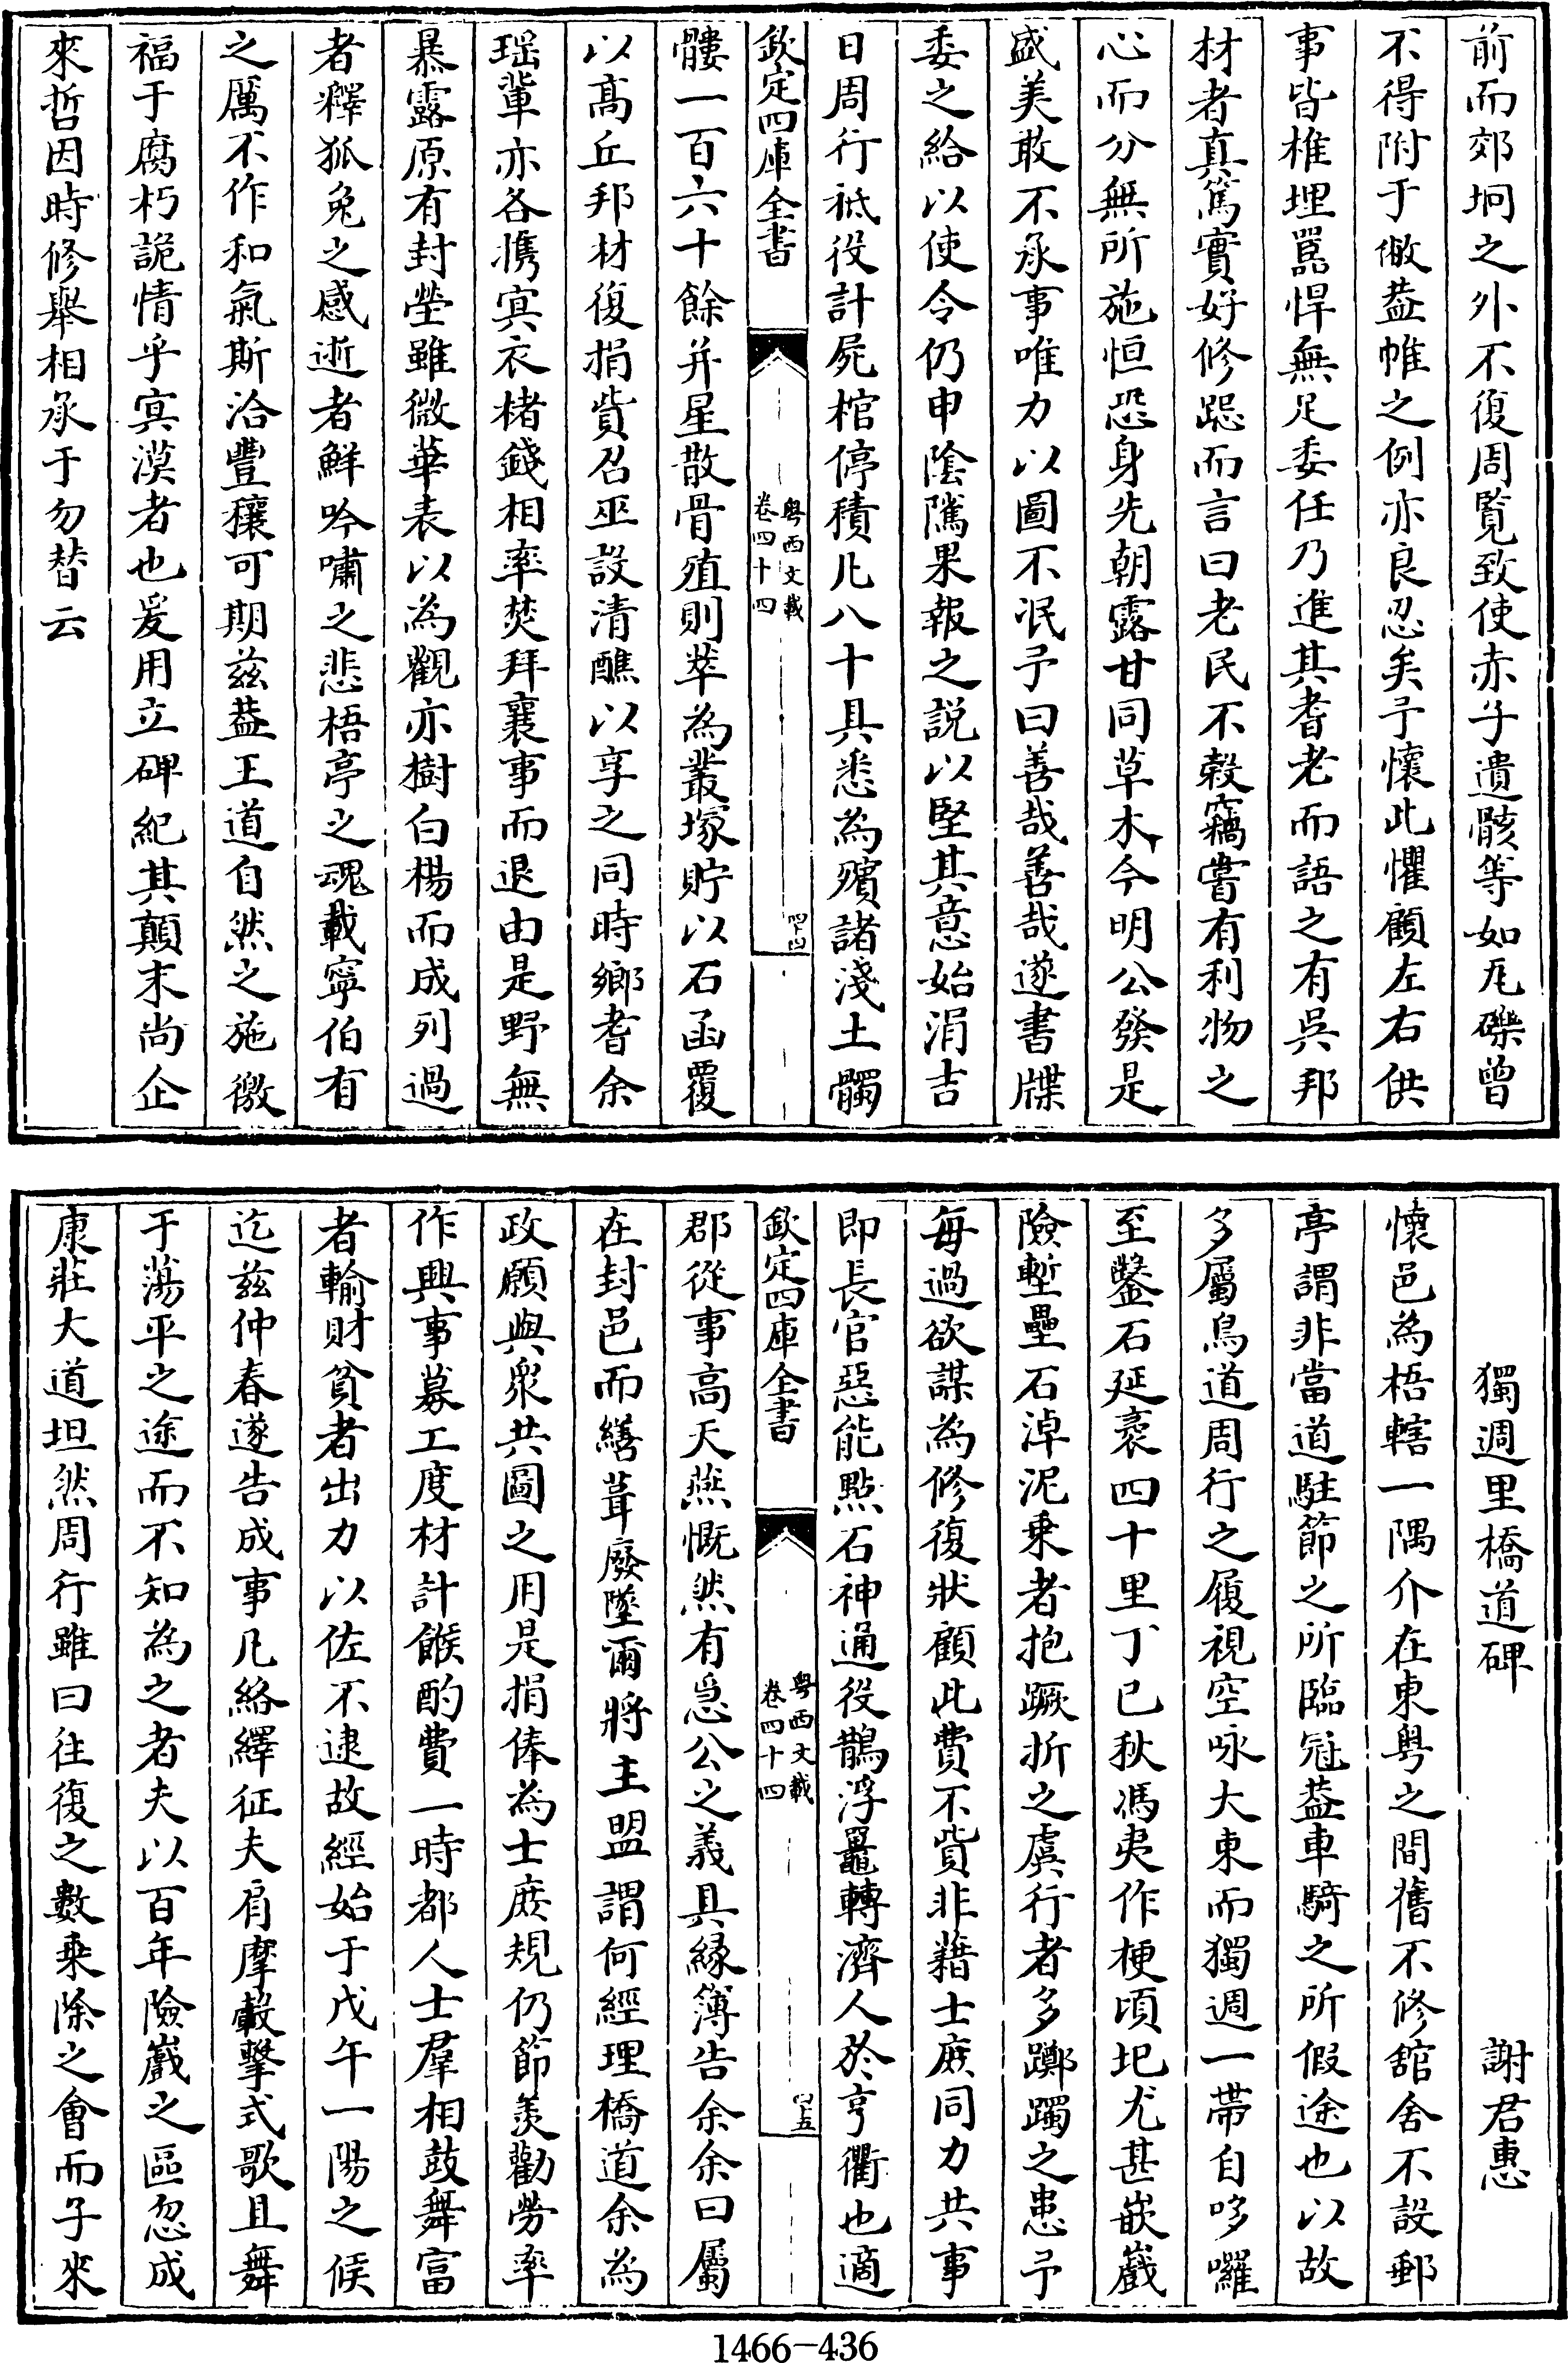 前而郊坰之外不復周覧致使赤子遺骸等如瓦礫曾
不得附于敝葢帷之例亦良忍矣予懷此懼顧左右供
事皆椎埋嚚悍無足委任乃進其耆老而語之有呉邦
材者真篤實好修跽而言曰老民不榖竊嘗有利物之
心而分無所施恒恐身先朝露甘同草木今明公發是
盛美敢不承事唯力以圖不泯予曰善哉善哉遂書牒
委之給以使令仍申隂隲果報之説以堅其意始涓吉
日周行祗役計屍棺停積凡八十具悉為殯諸淺土髑
欽定四庫全書
粤西文載
卷四十四
四十四
髏一百六十餘并星散骨殖則萃為叢塚貯以石函覆
以髙丘邦材復捐貲召巫設清醮以享之同時鄉耆余
瑶輩亦各携㝠衣楮錢相率焚拜襄事而退由是野無
暴露原有封塋雖微華表以為觀亦樹白楊而成列過
者釋狐兔之感逝者鮮吟嘯之悲梧亭之魂載寧伯有
之厲不作和氣斯洽豐穰可期兹葢王道自然之施徼
福于腐朽詭情乎㝠漠者也爰用立碑紀其顛末尚企
來哲因時修舉相承于勿替云
獨週里橋道碑
謝君惠
懷邑為梧轄一隅介在東粤之間舊不修舘舍不設郵
亭謂非當道駐節之所臨冠葢車騎之所假途也以故
多屬鳥道周行之履視空咏大東而獨週一帶自哆囉
至鑿石延袤四十里丁巳秋馮夷作梗頃圯尤甚嵌巇
險塹壘石淖泥乗者抱蹶折之虞行者多躑躅之患予
每過欲謀為修復狀顧此費不貲非藉士庶同力共事
即長官惡能點石神通役鵲浮鼉轉濟人於亨衢也適
欽定四庫全書
粤西文載
卷四十四
四十五
郡從事高天燕慨然有爲公之義具縁簿告余余曰屬
在封邑而繕葺廢墜爾將主盟謂何經理橋道余為
政願與衆共圖之用是捐俸為士庶規仍節羡勸勞率
作興事募工度材計餱酌費一時都人士羣相鼓舞富
者輸財貧者出力以佐不逮故經始于戊午一陽之候
迄兹仲春遂告成事凡絡繹征夫肩摩轂擊式歌且舞
于蕩平之途而不知為之者夫以百年險巇之區忽成
康莊大道坦然周行雖曰往復之數乗除之會而子來
1466-436